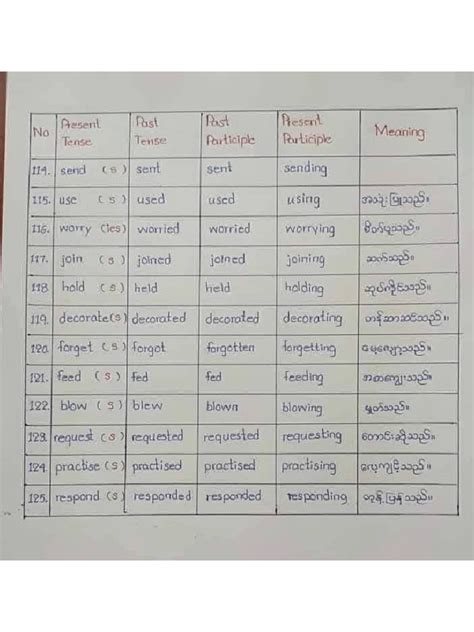 No Present Tense Past Tense Past Participle Present Participle Meaning
114. send (s) sent sent sending
115. use (s) used used using အသုံးပြုသည်။
116. worry (ies) worried worried worrying စိတ်ပူသည်။
117. join (s) joined joined joining ဆက်သည်။
118 hold (s) held held holding ဆုပ်ကိုင်သည်။
119. decorate(s) decorated decorated decorating တန်ဆာဆင်သည်။
120. forget (s) forgot forgotten forgetting မေ့လျော့သည်။
121. feed (s) fed fed feeding အစာကျွေးသည်။
122. blow (s) blew blown blowing မှုတ်သည်။
123. request (s) requested requested requesting တောင်းဆိုသည်။
124. practise (s) practised practised practising လေ့ကျင့်သည်။
125. respond (s) responded responded responding တုန့်ပြန်သည်။